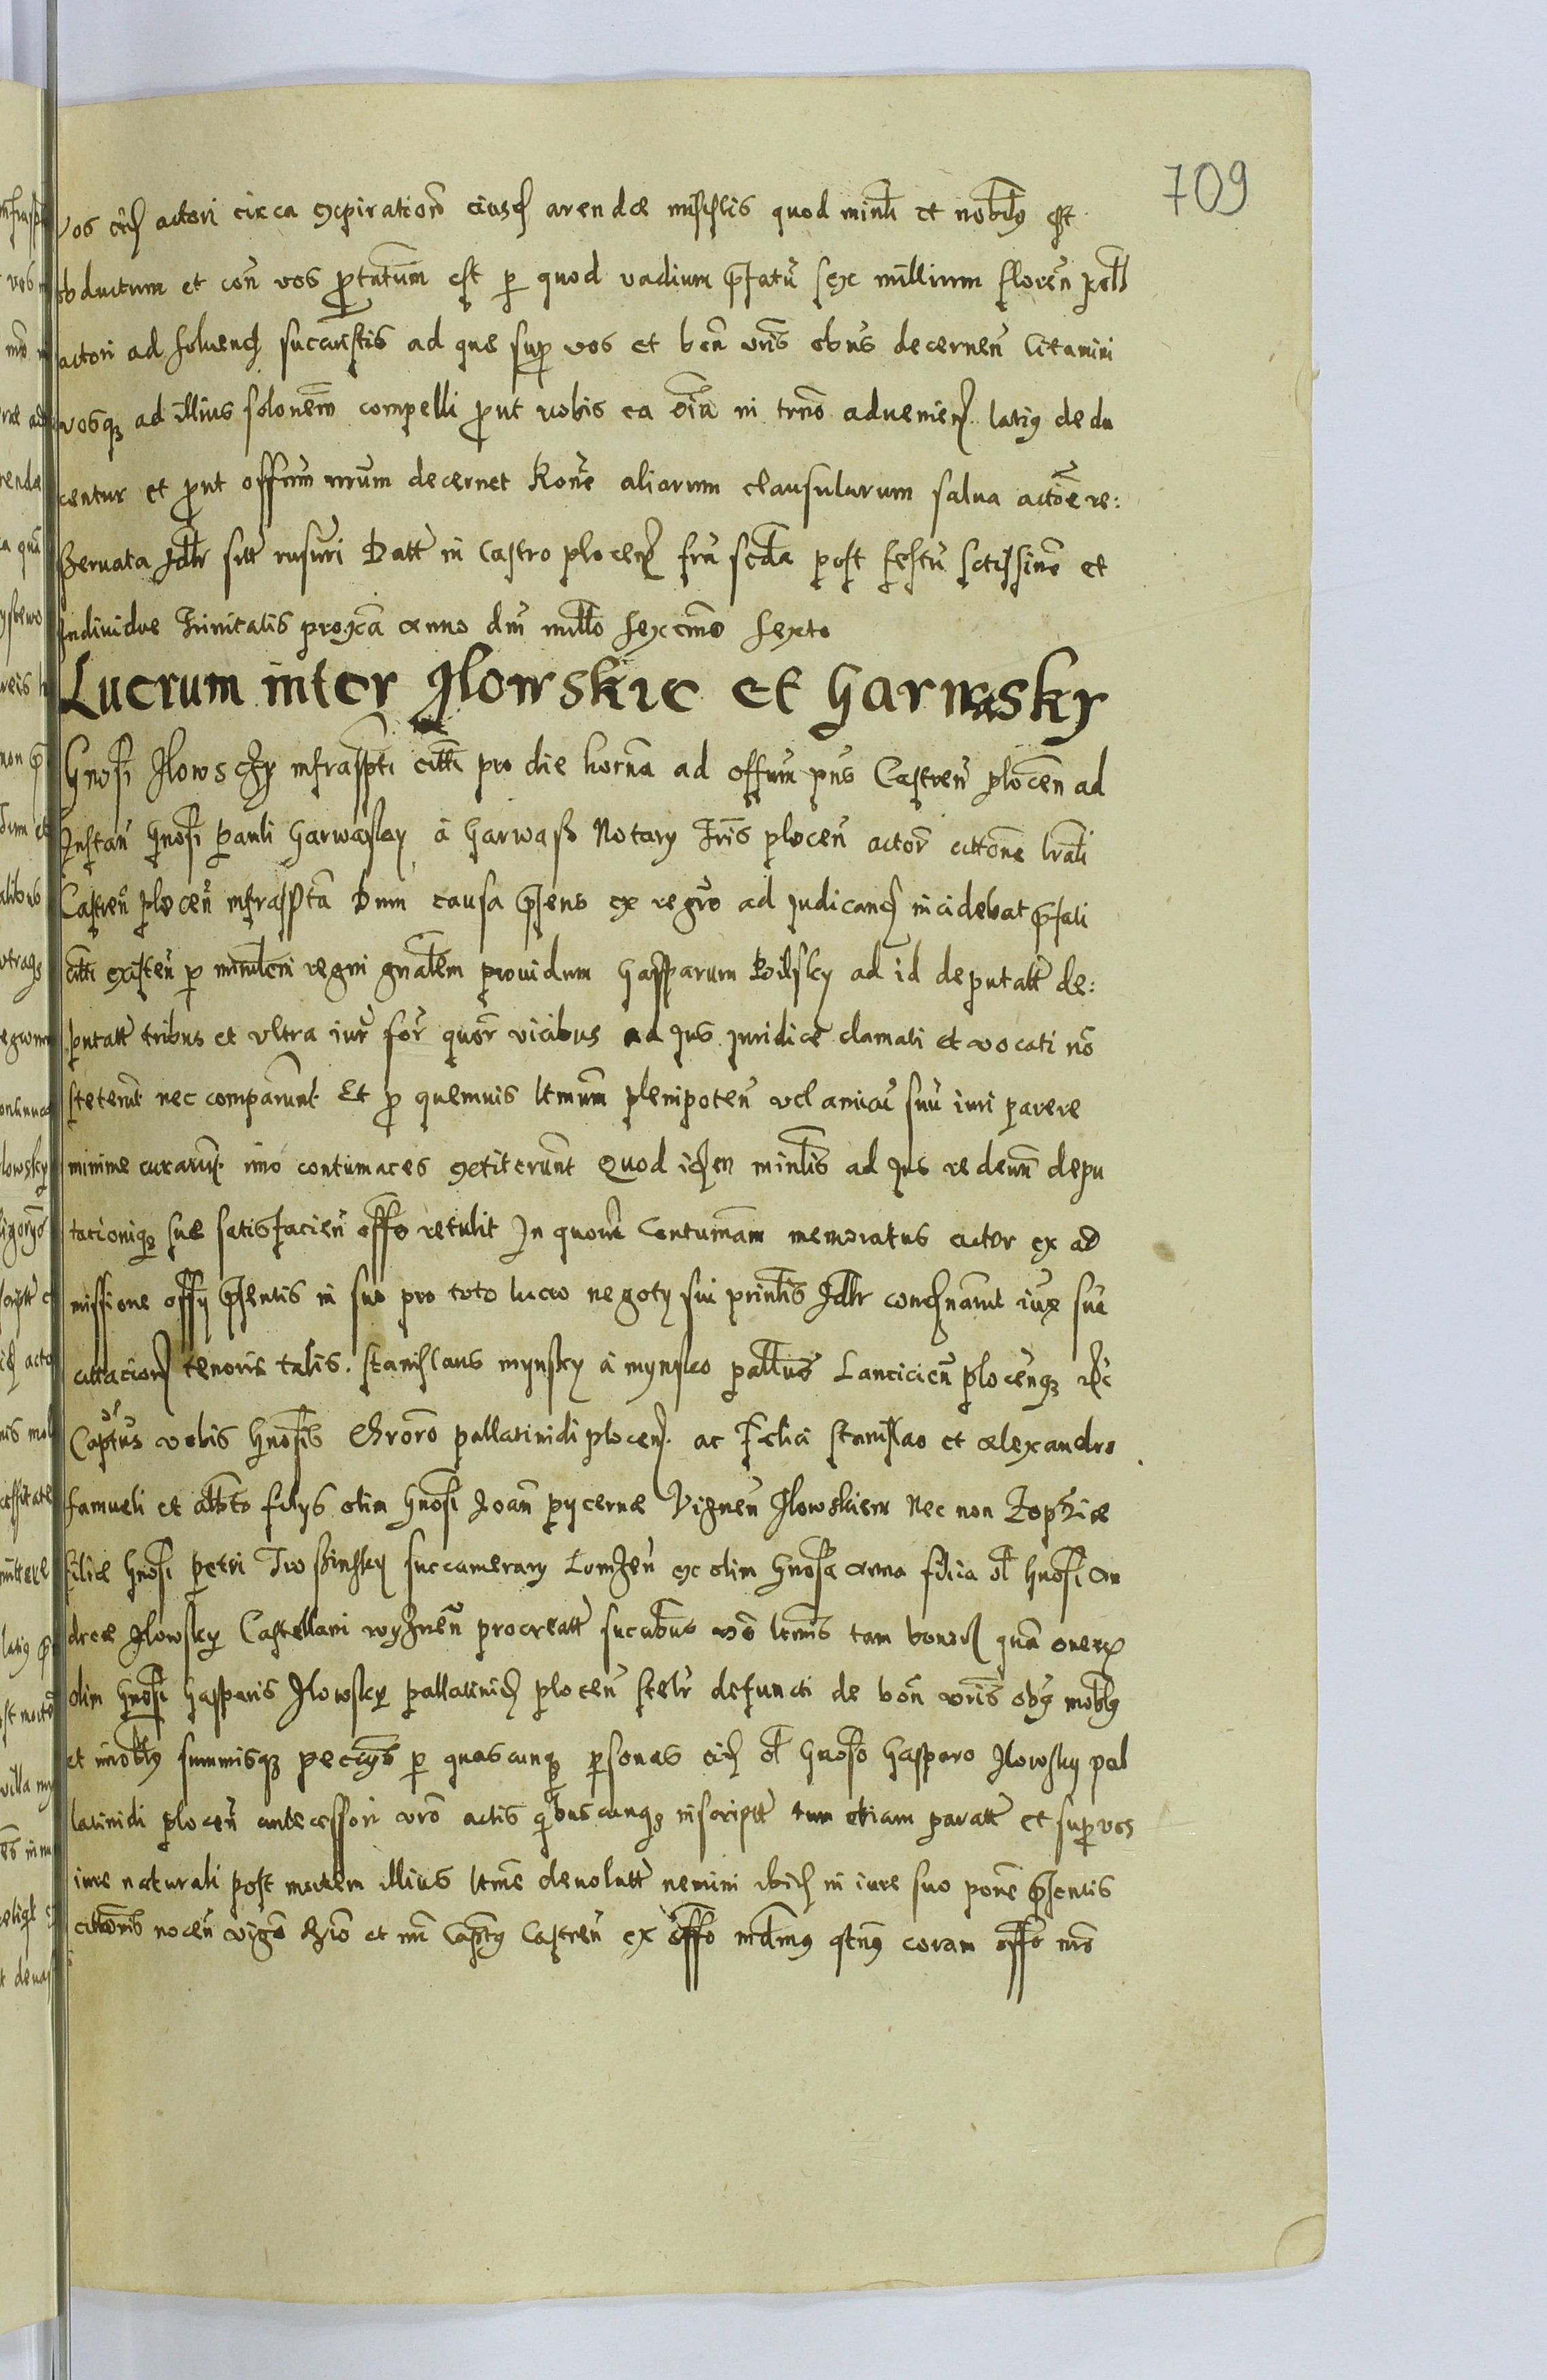 709
vos eid actori circa expiration eiusd arendæ missilis quod minli et nobilbus est
obductum et con vos ptatum est p quod vadium pfatu sex millium floren pall
actori ad soluend succuistis ad que sup vos et bon vris obus decernen Citamini
vosq ad illius solonem compelli put vobis ea oia in trno advenien latius dedu
centur et put offium nrum decernet Rone aliarum clausularum salua actoe re:
seruata Idlr sitt rusuri Datt in Castro plocen fria scda post festu sctissime et
Individue Trinitatis proxca anno dni millo sexcmo sexto
Lucrum inter Ilowskie et Garwasky
Gnosi Ilowscy infrascpti citti pro die horna ad offium pns Castren plocen ad
Instan gnosi pauli Garwasky à Garwass Notary Tris plocen actor cittone lrali
Castren plocen infrascpta Dum causa psens ex regro ad judicand incidebat pfati
citti existen p minilem regni gnalem providum Gasparum Bilsky ad id deputatt de:
putatt tribus et vltra iur for quor vicibus ad jus juridice clamati et vocati no
steterut nec comparunt Et p quemuis ltmum plenipoten vel amicu suu iuri parere
minime curarut imo contumaces extiterunt Quod idem minlis ad jus redeun depu
tacioniq sue satisfacien offo retulit In quor Contumam memoratus actor ex ad
missione offij psentis in suo pro toto lucro negoty sui prinlis Idlr condnarut iure sua
cittaciord tenoris talis. Stanislaus mynsky à mynsko pallnus Lanciciu plocenq etc
Captus vobis Gnosis Groro pallatinidi plocen. ac Felici Stanislao et alexandro
Samueli et alberto filys olim Gnosi Joan pycernæ Viznen Ilowskiem Nec non Zophiæ
filiæ Gnosi petri Twossinsky succamerary Lomzen ex olim Gnosa anna filia ol Gnosi an
dreæ Ilowsky Castellani wyznen procreatt sucabus vo ltmis tam bonor qua onerx
olim Gnosi Gasparis Ilowsky pallatinid plocen sterlr defuncti de bon vris obus moblbus
et imoblbus summisq peccijs p quascunq psonas eid ol Gnoso Gasparo Ilowsky pal
latinidi plocen antecessori vro actis qbuscunq inscriptt tum etiam paratt et sup vos
iure naturali post mortem illius ltme devolutt nemini ibid in iure suo pone psentis
cittaonis nocen vigo Regio et mi Captus Castren ex offo mdmus qtnus coram offo mo